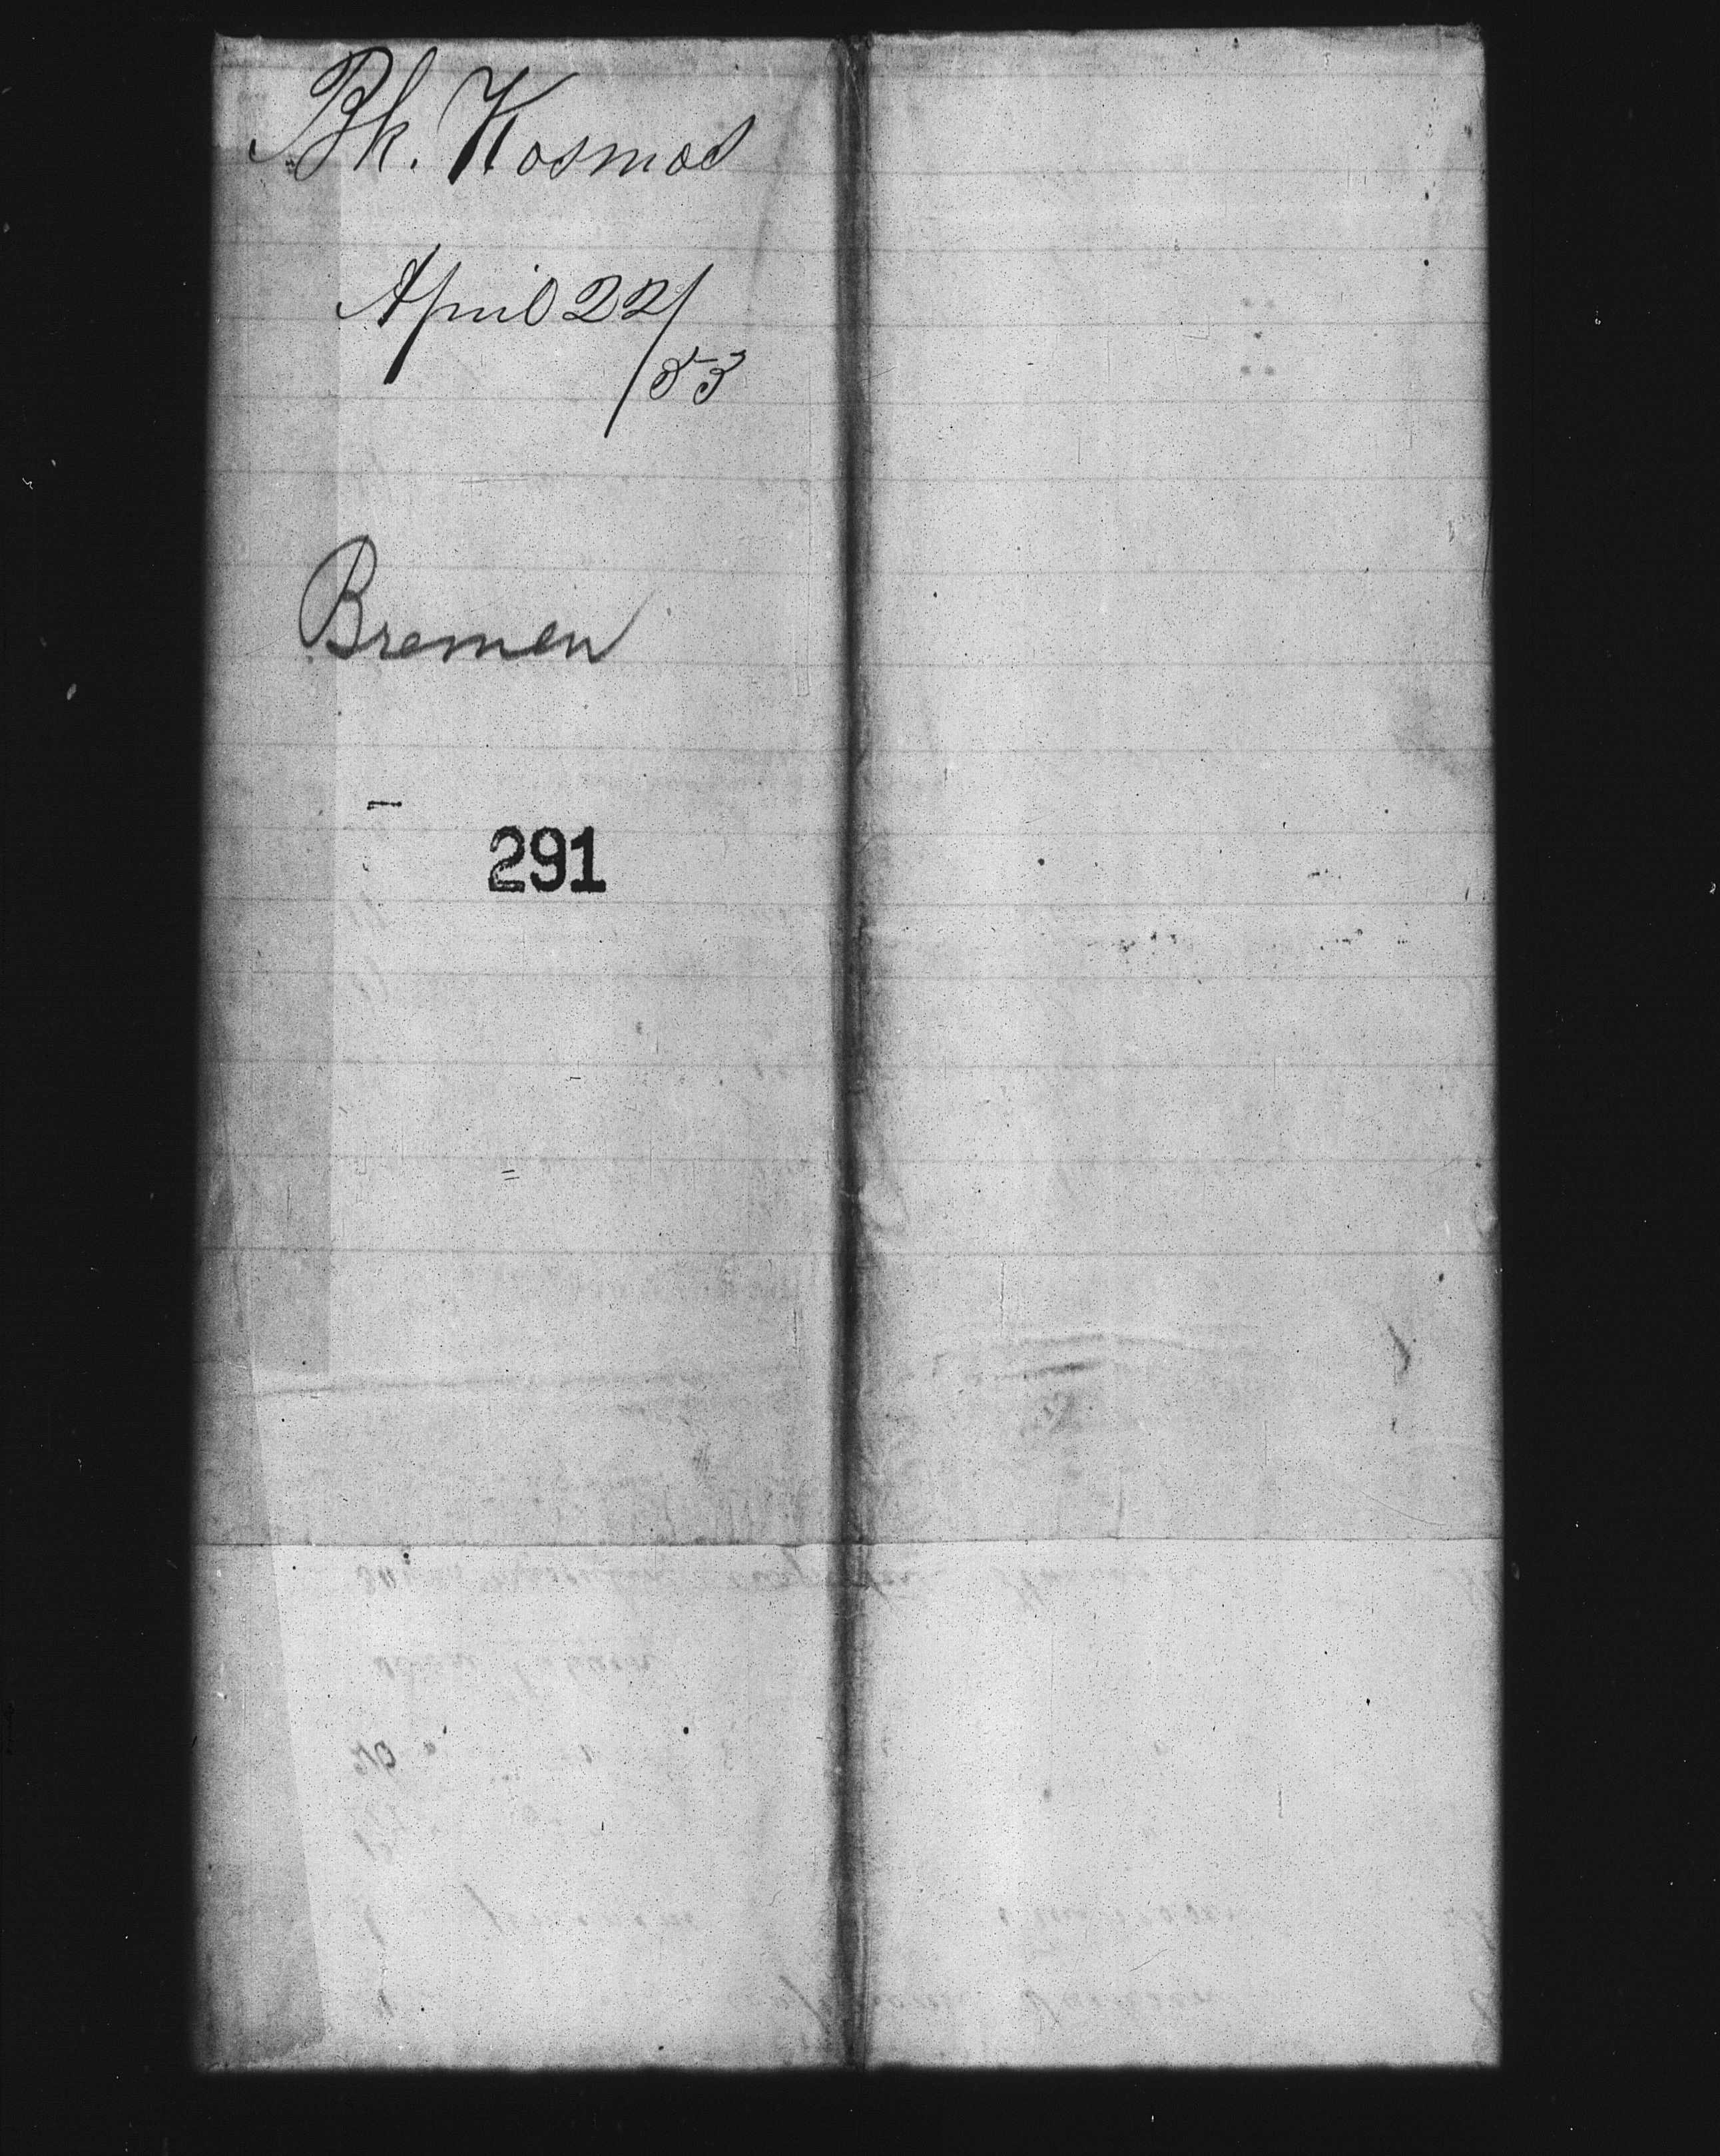 Bk. Kosmos
April 22/
/53
Bremen
291